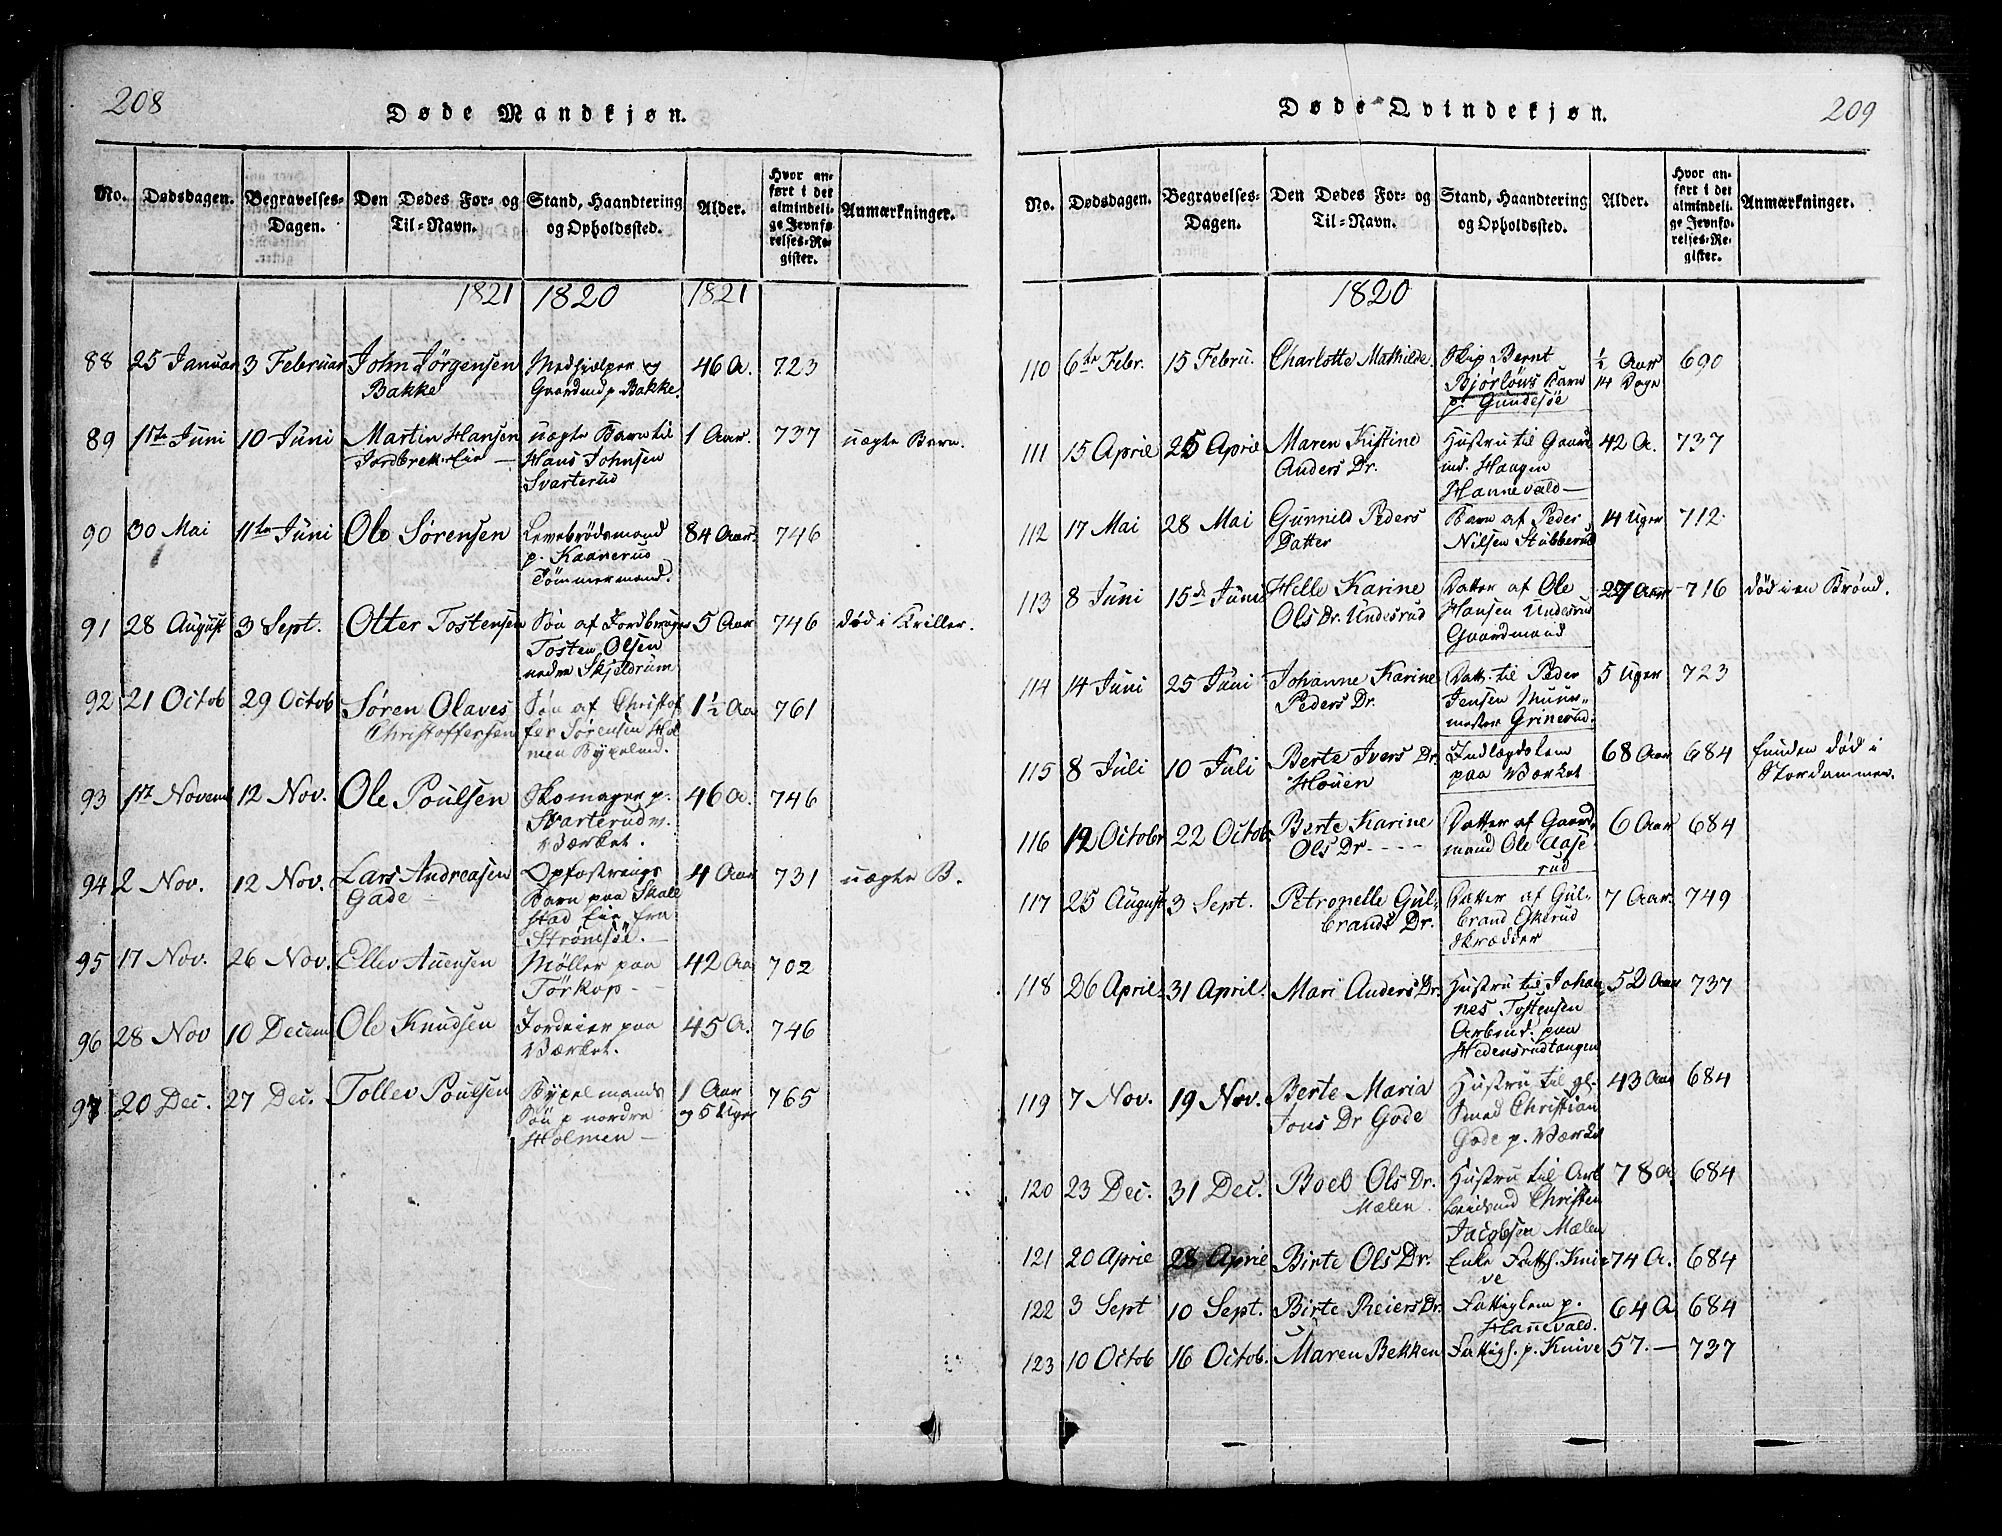 208
Døde Mandkjøn.
No.
Dødsdagen.
Begravelses-
Dagen.
Den Dødes For- og
Til-Navn.
Stand, Haandtering
og Opholdssted.
Alder.
Hvor an-
ført i det
almindeli-
ge Jevnfø-
relses-Re-
gister.
Anmærkninger.
1821 1820 1821
88 25 Januar 3 Februar John Jörgensen Medhjelper og 46 A. 723
Bakke Gaardmd p. Bakke.
89 1ste Juni 10 Juni Martin Hansen uægte Barn til 1 Aar. 737 uægte Barn.
Jordbrek. Eie Hans Johnsen
Svarterud
90 30 Mai 11te Juni Ole Sørensen Levebrödsmand 84 Aar. 746
p. Kaanerud
Tömmermand.
91 28 August 3 Sept. Otter Tostensen Sön af Jordbruger 5 Aar 746 död i Kriller.
Tosten Olsen
nedre Skjeldrum
92 21 Octob 29 Octob Sören Olaves Sön af Christof 1½ Aa 761
Christoffersen fer Sörensen Hol
men Bÿxelmd.
93 1ste Novemb 12 Nov. Ole Poulsen Skomager p. 46 A. 746
Svarterud v.
Værket.
94 2 Nov. 12 Nov. Lars Andreasen Opfostrings 4 Aar 731 uægte B.
Gade Barn paa Skalle
stad Eie fra
Strömsöe.
95 17 Nov. 26 Nov. Ellev Auensen Möller paa 42 Aa 702
Törkop
96 28 Nov 10 Decem Ole Knudsen Jordeier paa 45 A. 746
Værket.
97 20 Dec. 27 Dec. Tollev Poulsen Bÿxelmands 1 Aar 765
Sön p nordre og 5 Uger
Holmen
209
Døde Qvindekjøn.
No.
Dødsdagen.
Begravelses-
Dagen.
Den Dødes For- og
Til-Navn.
Stand, Haandtering
og Opholdssted.
Alder.
Hvor an-
ført i det
almindeli-
ge Jevnfø-
relses-Re-
gister.
Anmærkninger.
1820
110 6te Febr. 15 Febru. Charlotte Mathilde Skip Bernt ½ Aar 690
Bjórlöws Barn 14 Dage
p. Gundesöe
111 15 April 25 April Maren Kistine Hustru til Gaard 42 A. 737
Anders Dr. md. Haagen
Hannevald
112 17 Mai 28 Mai Gunnild Peders Barn af Peder 14 Uger 712
Datter Nilsen Stubberud
113 8 Juni 15de Juni Helle Karine Datter af Ole 27 Aar 716 död i en Brönd.
Ols Dr. Undesrud Hansen Undesrud
Gaardmand
114 14 Juni 25 Juni Johanne Karine Datt. til Peder 5 Uger 723
Peders Dr. Jensen Muur-
mester Grinerud.
115 8 Juli 10 Juli Berte Ivers Dr. Indlægdslem 68 Aar 684 funden död i
Houen paa Værket Stordammen.
116 12 Octobr 22 Octob Berte Karine Datter af Gaard- 6 Aar 684
Ols Dr mand Ole Aase
rud
117 25 August 3 Sept. Petronelle Gul- Datter af Gul- 7 Aar. 749
brands Dr. brand Eskerud
Skrædder
118 26 April 31 April. Mari Anders Dr. Hustru til Johan 52 Aar 737
nes Tostensen
Arbmd. paa
Hedensrudtangen
119 7 Nov. 19 Nov. Berte Maria Hustru til gl. 43 Aar 684
Jons Dr Gade Smed Christian
Gade p. Værket
120 23 Dec. 31 Dec. Boel Ols Dr. Hustru til Arb 78 A 684
Mælen. beidsmd Christen
Jacobsen Mælen
121 20 April 28 April Birte Ols Dr. Enke Fattigl. Kni 74 A. 684
ve
122 3 Sept 10 Sept. Birte Reiers Dr. Fattiglem p. 64 A 684
Hannevald.
123 10 Octob 16 Octob. Maren Bekken Fattigl. p. Knive 57. 737